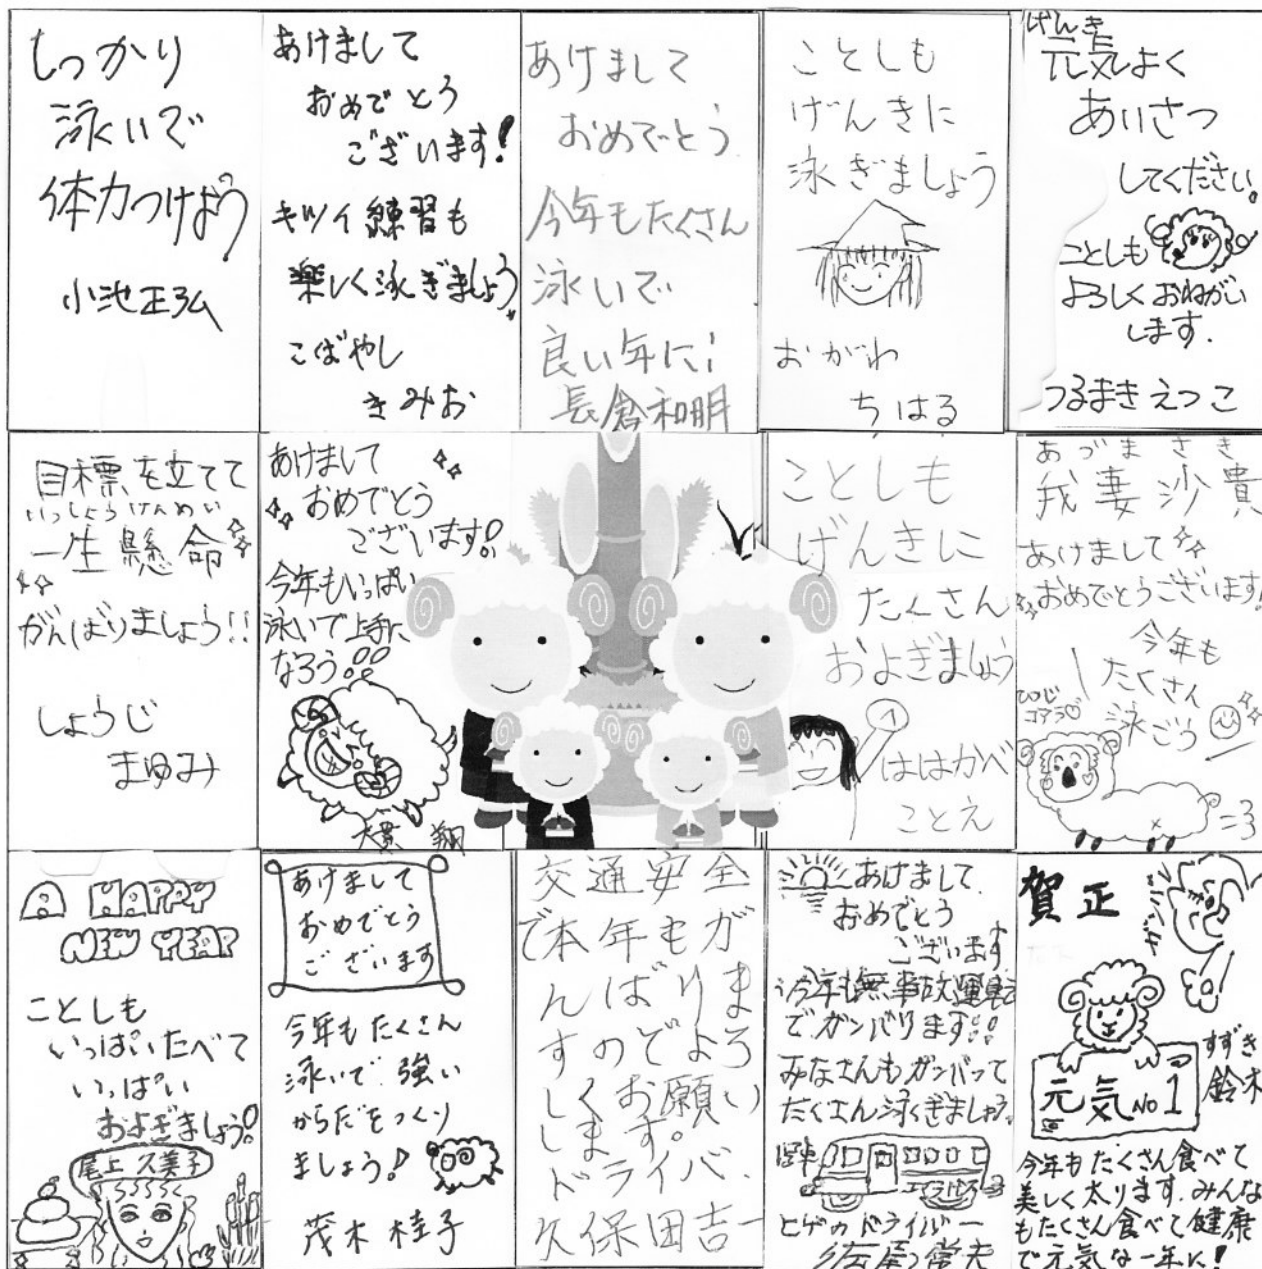 しっかり
泳いで
体力つけよう
小池正弘
あけまして
おめでとう
ございます!
キツイ練習も
楽しく泳ぎましょう。
こばやし
きみお
あけまして
おめでとう
今年もたくさん
泳いで
良い年に!
長倉和明
ことしも
げんきに
泳ぎましょう
おがわ
ちはる
げんき
元気よく
あいさつ
してください。
ことしも
よろしくおねがい
します.
つるまきえつこ
目標を立てて
いっしょうけんめい
一生懸命
がんばりましょう!!
しょうじ
まゆみ
あけまして
おめでとう
ございます!
今年もいっぱい
泳いで上手に
なろう!!
大貫 翔
ことしも
げんきに
たくさん
およぎましょう
ははかべ
ことえ
あづま さき
我妻沙貴
あけまして
おめでとうございます!
今年も
たくさん
泳ごう
ひつじ
コアラ♡
A HAPPY
NEW YEAR
ことしも
いっぱいたべて
いっぱい
およぎましょう!
尾上久美子
あけまして
おめでとう
ございます
今年もたくさん
泳いで強い
からだをつくり
ましょう!
茂木桂子
交通安全
で本年もが
んばりま
すのでよろ
しくお願い
します。
ドライバー
久保田吉一
あけまして
おめでとう
ございます
今年も無事故運転
でガンバります!!
みなさんもガンバって
たくさん泳ぎましょう。
ヒゲのドライバー
賀正
元気No1
すずき
鈴木
今年もたくさん食べて
美しく太ります.みんな
もたくさん食べて健康
で元気な一年に!